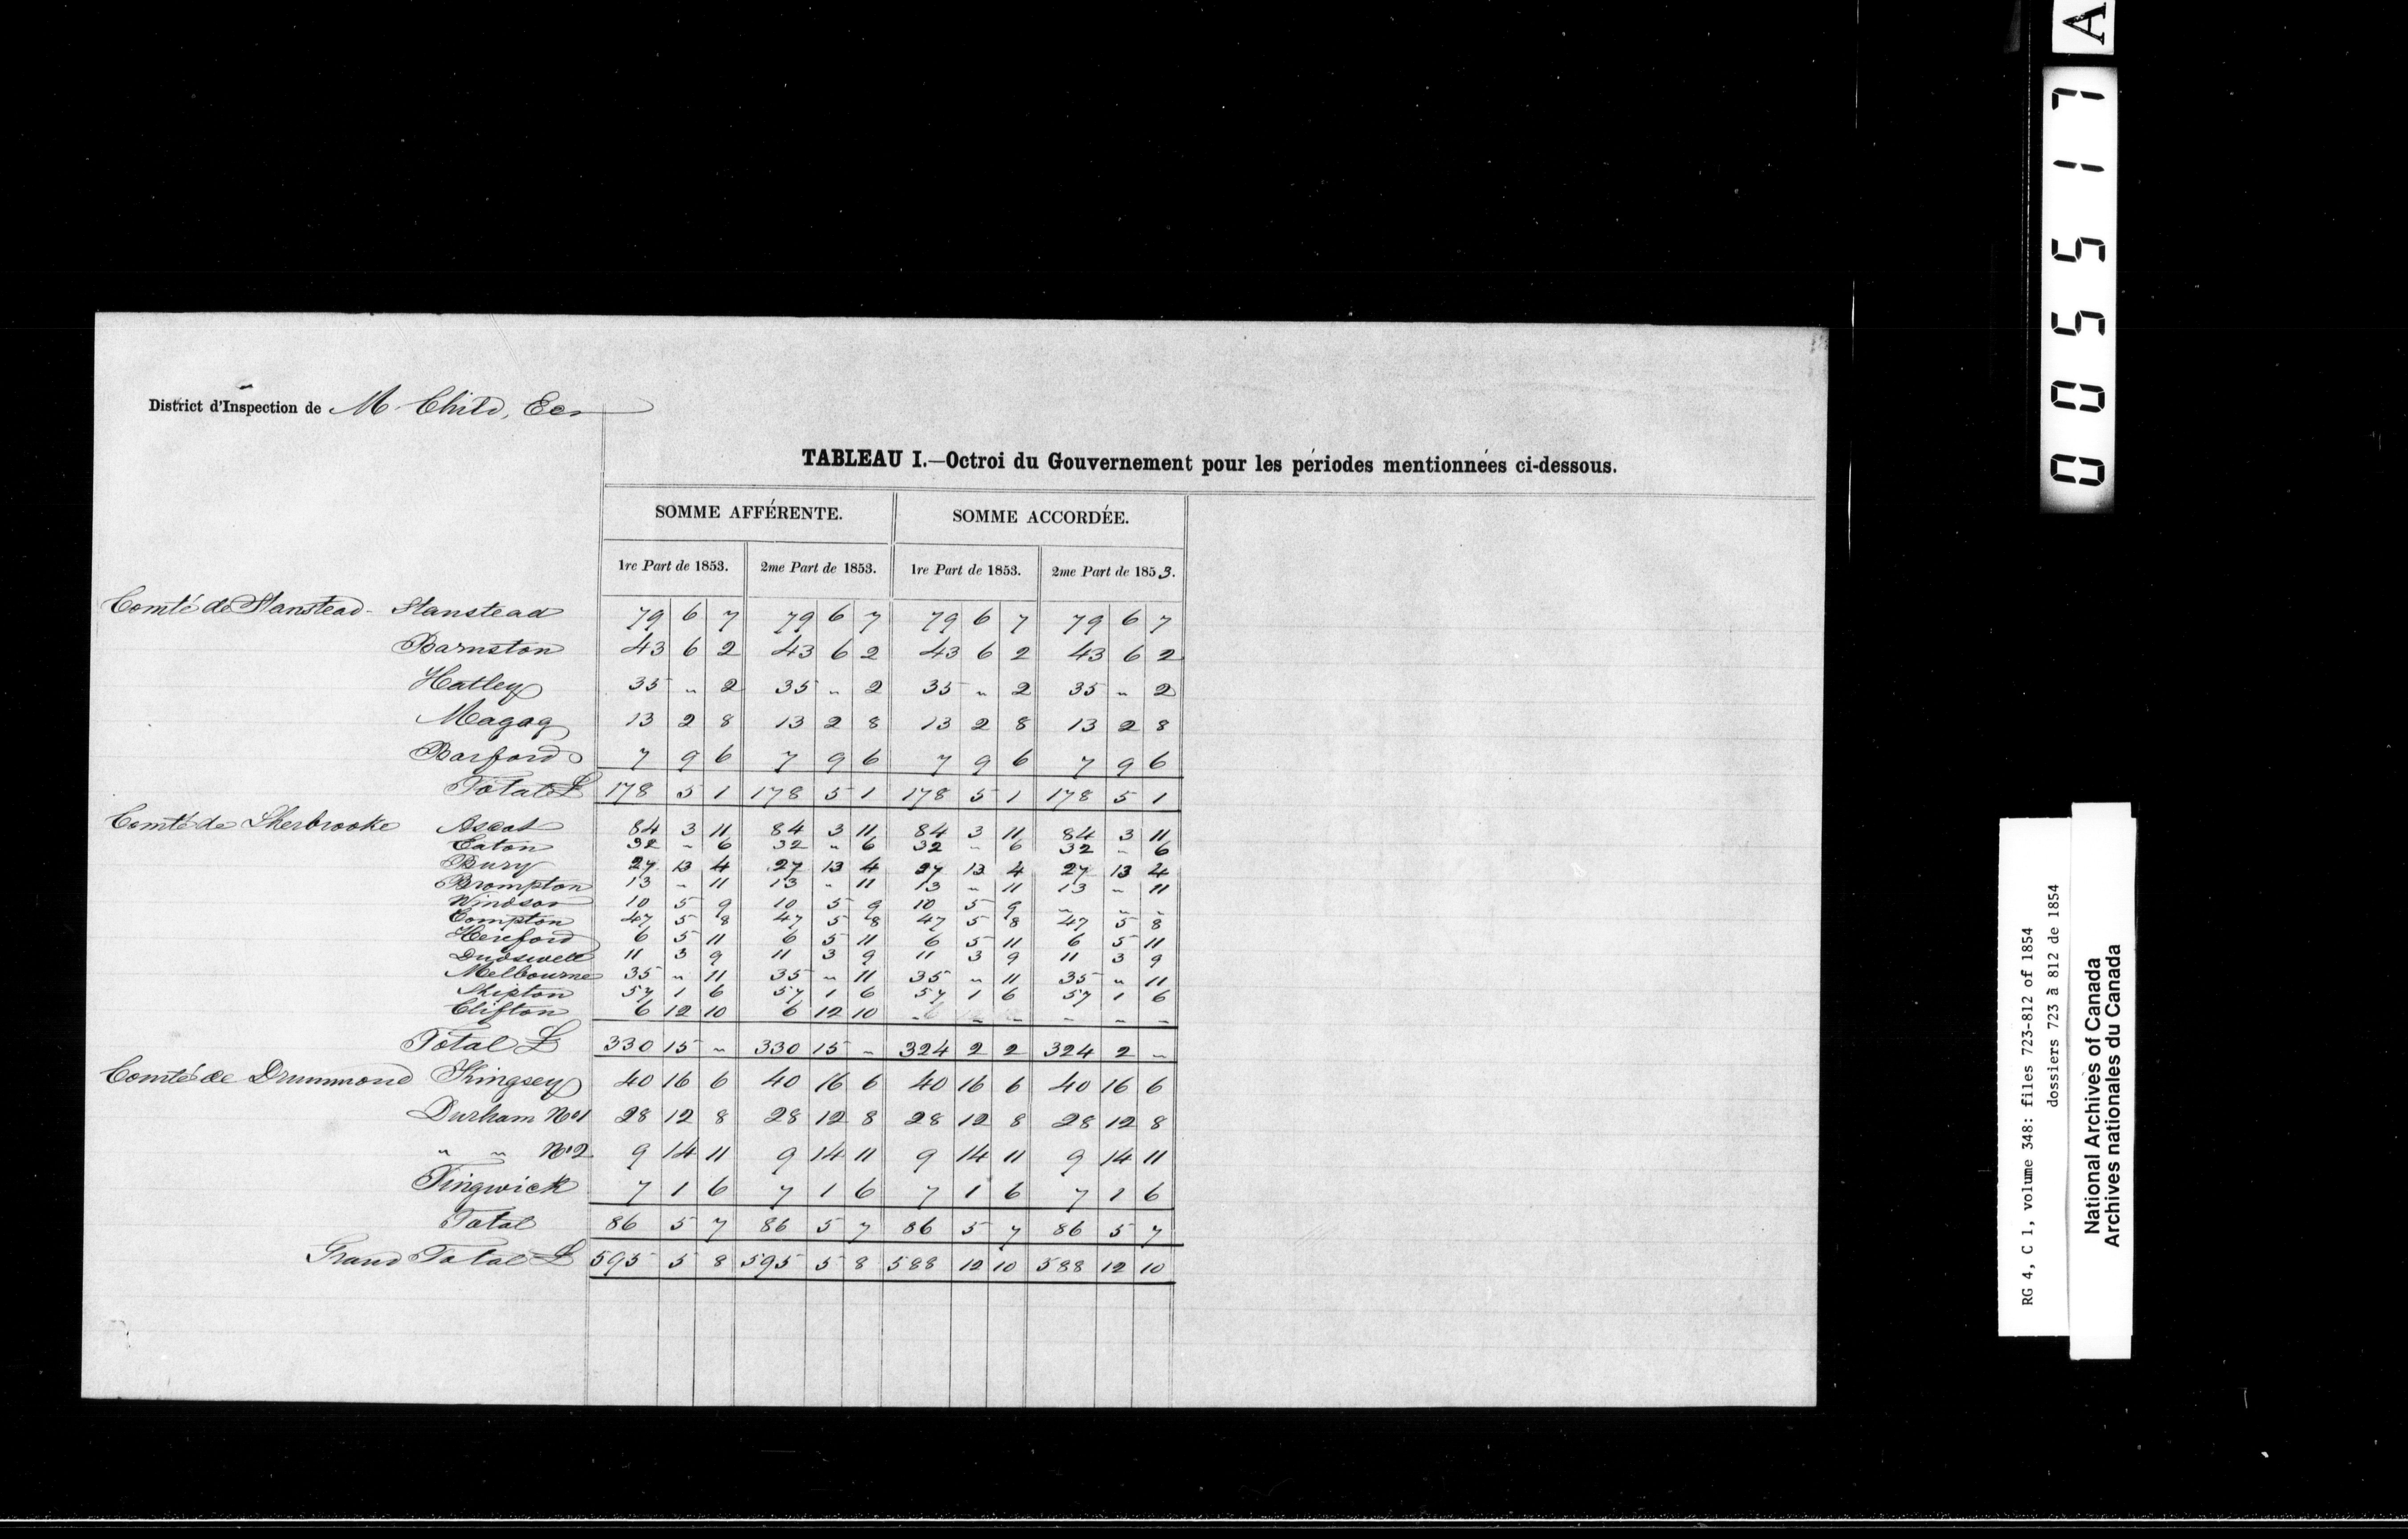 District d'Inspection de M. Child, Ecr
TABLEAU I.—Octroi du Gouvernement pour les périodes mentionnées ci-dessous.
SOMME AFFÉRENTE. SOMME ACCORDÉE.
1re Part de 1853. 2me Part de 1853. 1re Part de 1853. 2me Part de 1853.
Comté de Stanstead - Stanstead 79 6 7 79 6 7 79 6 7 79 6 7
Barnston 43 6 2 43 6 2 43 6 2 43 6 2
Hatley 35 " 2 35 " 2 35 " 2 35 " 2
Magog 13 2 8 13 2 8 13 2 8 13 2 8
Barford 7 9 6 7 9 6 7 9 6 7 9 6
Total £ 178 5 1 178 5 1 178 5 1 178 5 1
Comté de Sherbrooke Ascot 84 3 11 84 3 11 84 3 11 84 3 11
Eaton 32 " 6 32 " 6 32 " 6 32 " 6
Bury 27 13 4 27 13 4 27 13 4 27 13 4
Brompton 13 " 11 13 " 11 13 " 11 13 " 11
Windsor 10 5 9 10 5 9 10 5 9 " " "
Compton 47 5 8 47 5 8 47 5 8 47 5 8
Hereford 6 5 11 6 5 11 6 5 11 6 5 11
Dudswell 11 3 9 11 3 9 11 3 9 11 3 9
Melbourne 35 " 11 35 " 11 35 " 11 35 " 11
Shipton 57 1 6 57 1 6 57 1 6 57 1 6
Clifton 6 12 10 6 12 10 - - - - - -
Total £ 330 15 " 330 15 " 324 2 2 324 2 "
Comté de Drummond Kingsey 40 16 6 40 16 6 40 16 6 40 16 6
Durham No 1 28 12 8 28 12 8 28 12 8 28 12 8
" " No 2 9 14 11 9 14 11 9 14 11 9 14 11
Tingwick 7 1 6 7 1 6 7 1 6 7 1 6
Total 86 5 7 86 5 7 86 5 7 86 5 7
Grand Total £ 595 5 8 595 5 8 588 12 10 588 12 10
005517
A
RG 4, C 1, volume 348: files 723-812 of 1854
dossiers 723 à 812 de 1854
National Archives of Canada
Archives nationales du Canada